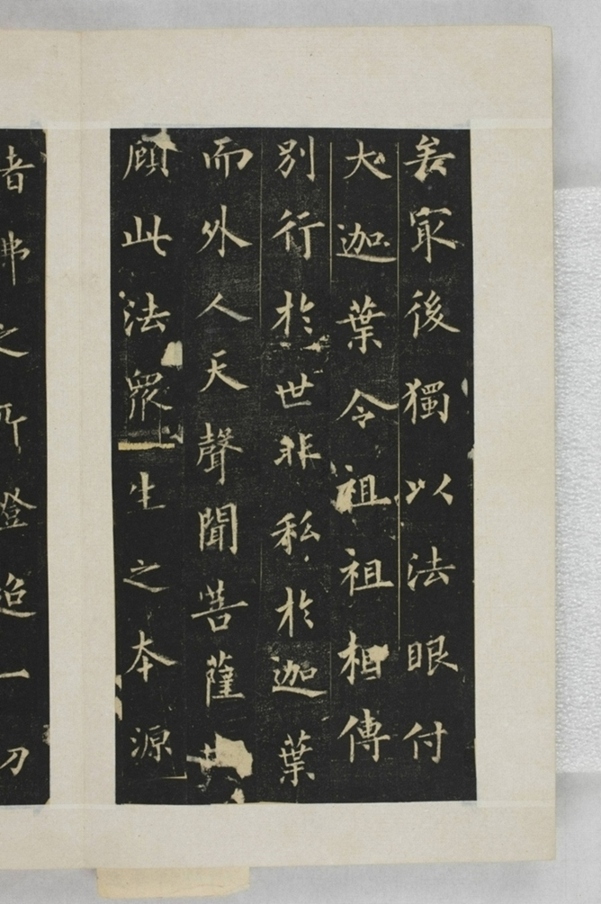 矣冣後獨以法眼付
大迦葉令祖祖相傳
別行於世非私於迦葉
而外人天聲聞菩薩
顧此法眾生之本源
諸佛之所證超一切